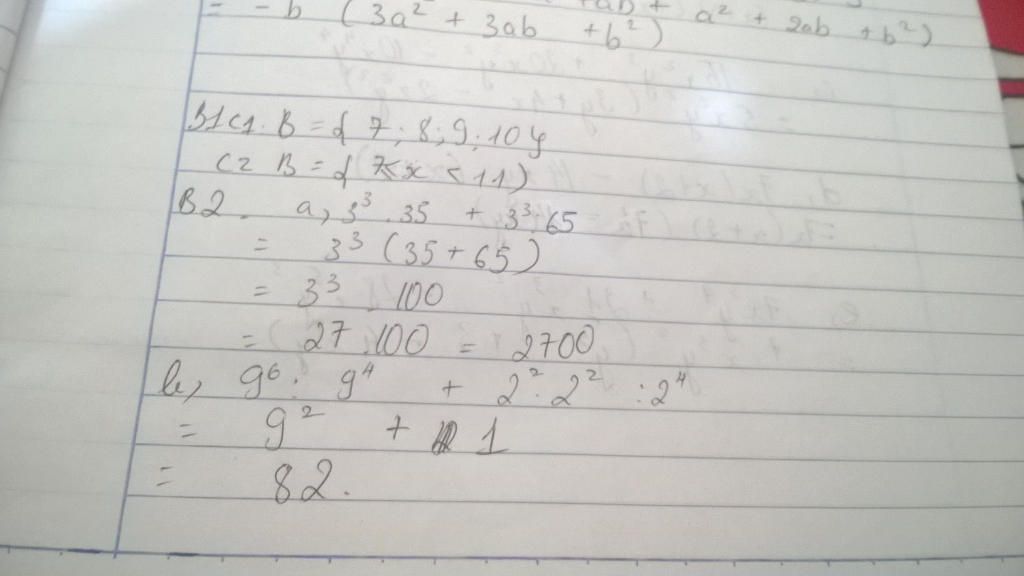 +ab + a² + 2ab + b²)
= -b (3a² + 3ab + b²)
B1 C1. B = { 7 ; 8 ; 9 ; 10 }
C2 B = { 7 < x < 11 )
B2. a, 3³ . 35 + 3³ . 65
= 3³ (35 + 65)
= 3³ . 100
= 27 . 100 = 2700
b, 9⁶ : 9⁴ + 2² . 2² : 2⁴
= 9² + 1
= 82.